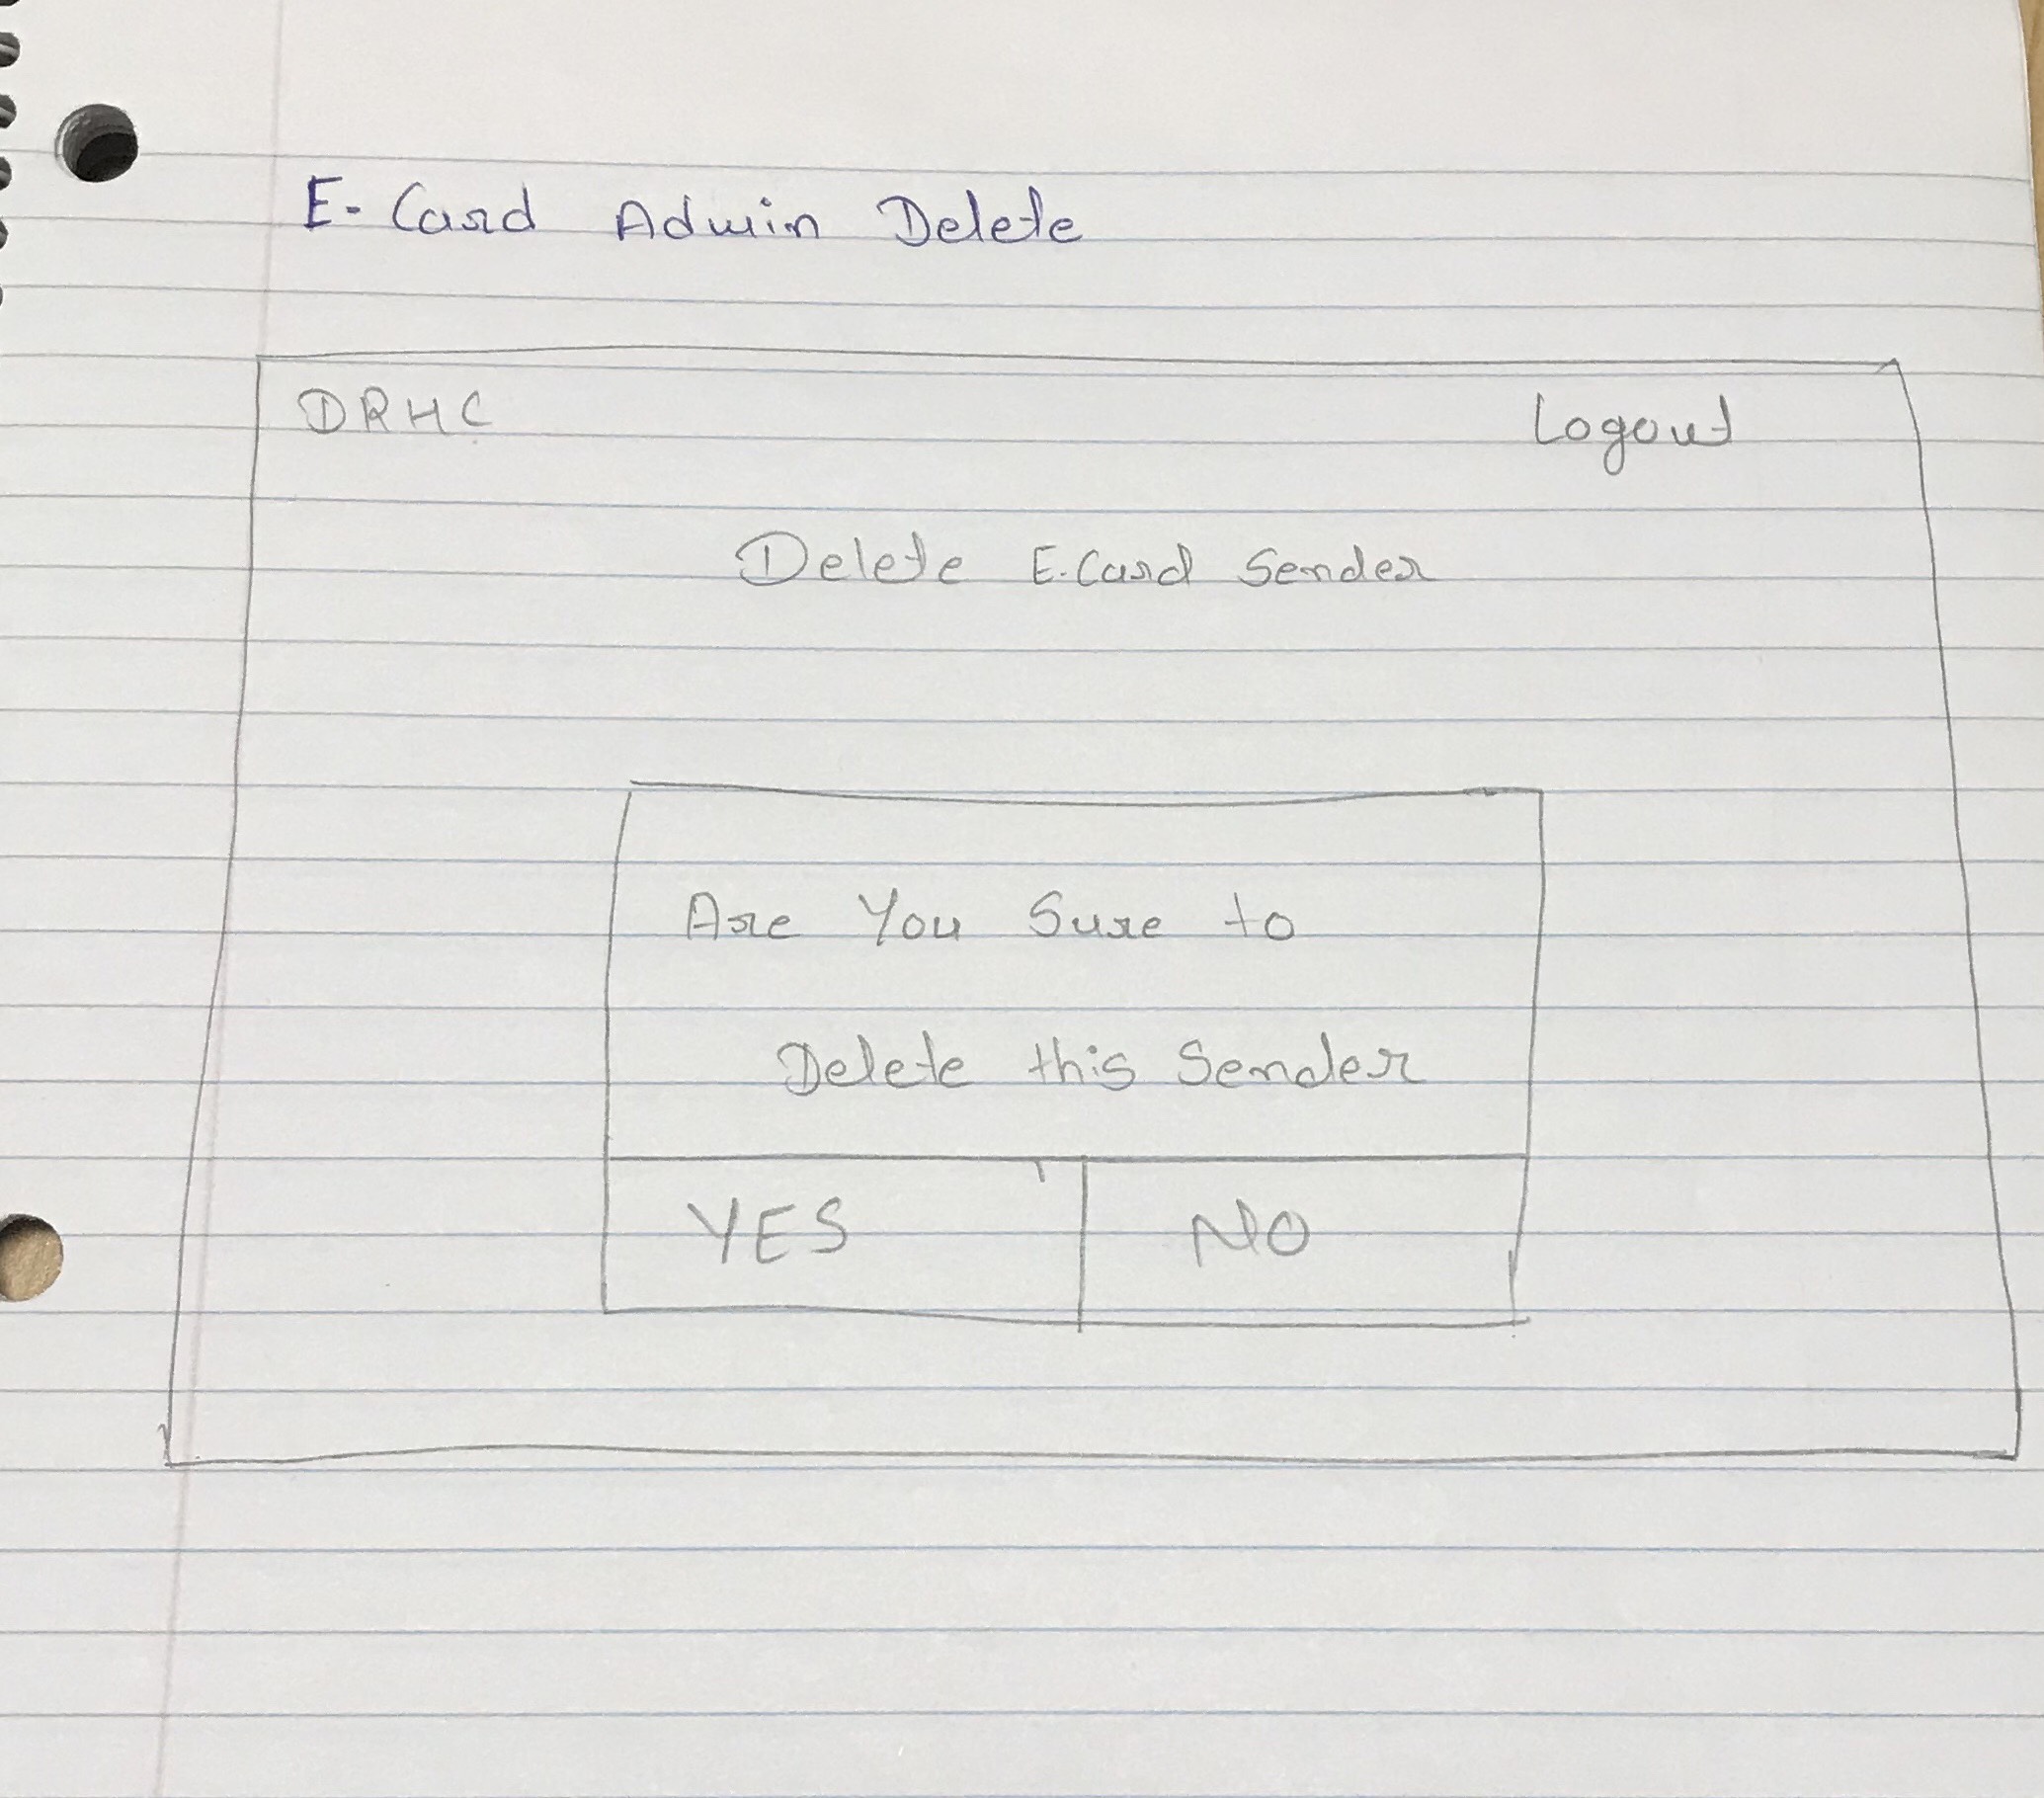 E-Card Admin Delete
DRHC Logout
Delete E-Card Sender
Are You Sure to
Delete this Sender
YES NO